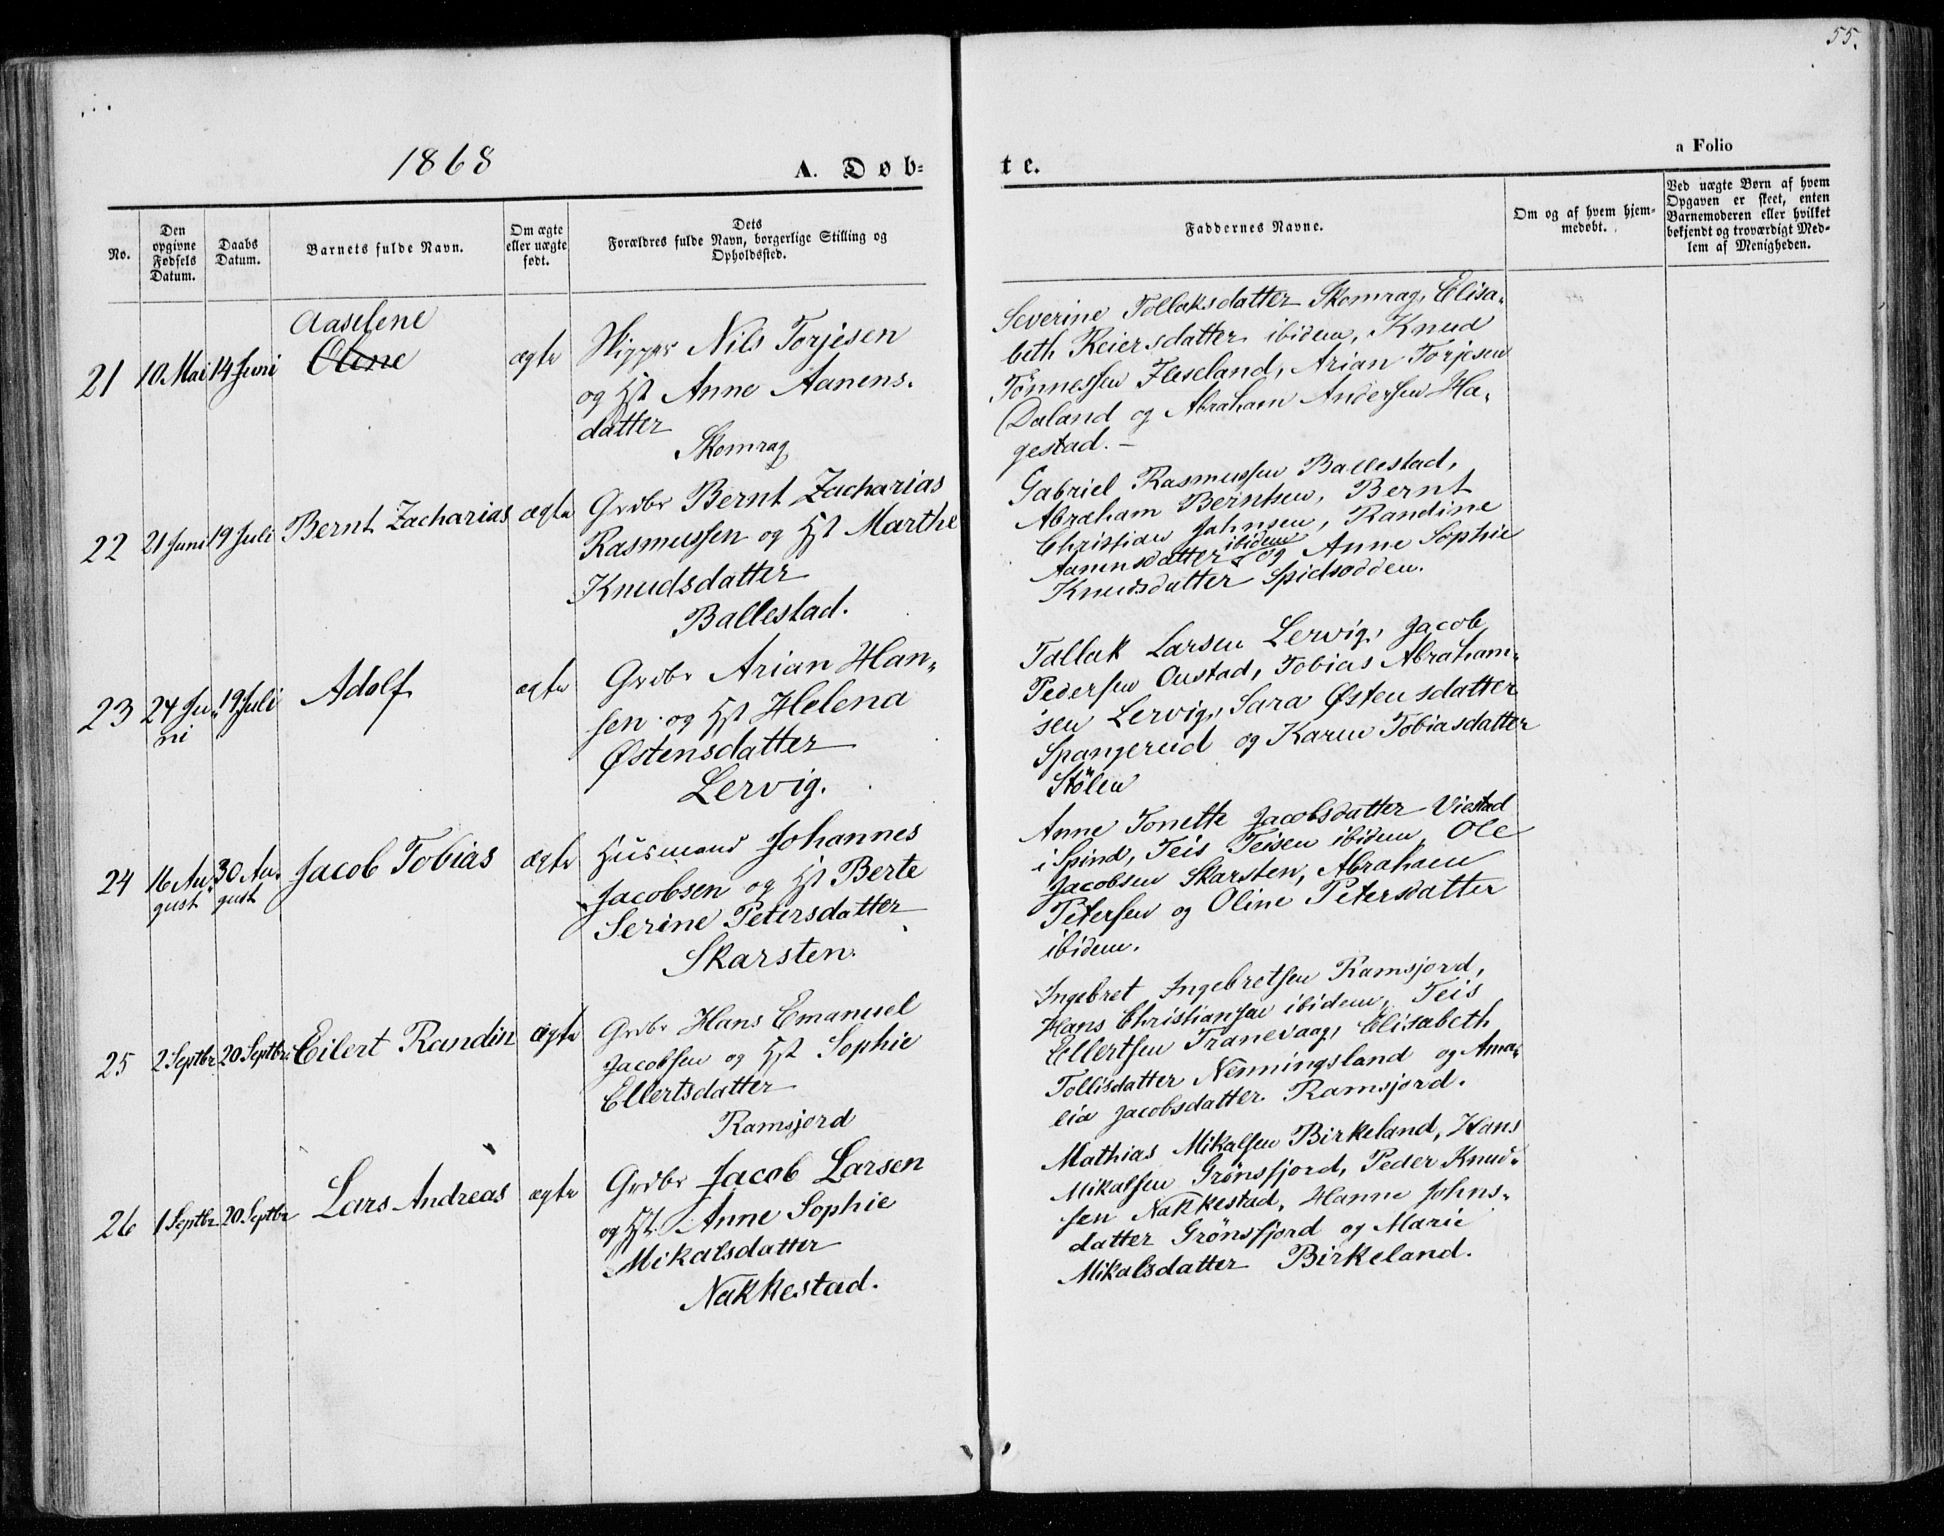 55.
1868
A. Døb-
te.
a Folio
No.
Den
opgivne
Fødsels
Datum.
Daabs
Datum.
Barnets fulde Navn.
Om ægte
eller uægte
født.
Dets
Forældres fulde Navn, borgerlige Stilling og
Opholdssted.
Faddernes Navne.
Om og af hvem hjem-
medøbt.
Ved uægte Børn af hvem
Opgaven er skeet, enten
Barnemoderen eller hvilket
bekjendt og troværdigt Med-
lem af Menigheden.
21 10 Mai 14 Juni
Aaselene
Oline
ægte
Skipper Nils Torjesen
og Hst Anne Aanens-
datter
Skomrag
Severine Tollaksdatter Skomrag, Elisa-
beth Reiersdatter ibidem, Knud
Tønnessen Fleseland, Arian Torjesen
Daland og Abraham Andersen Ha-
gestad. –
22 21 Juni 19 Juli Bernt Zacharias ægte
Grdbr Bernt Zacharias
Rasmussen og Hst Marthe
Knudsdatter
Ballestad.
Gabriel Rasmussen Ballestad,
Abraham Berntsen, Bernt
Christian Jahnsen, Randine
Aanensdatter ibidem og Anne Sophie
Knudsdatter Spidsodden.
23 24 Ju-
ni 19 Juli Adolf ægte
Grdbr Arian Han-
sen og Hst Helena
Østensdatter
Lervig.
Tallak Larsen Lervig, Jacob
Pedersen Oustad, Tobias Abraham-
sen Lervig, Sara Østensdatter
Spangereid og Karen Tobiasdatter
Stølen
24 16 Au-
gust 30 Au-
gust Jacob Tobias ægte
Husmand Johannes
Jacobsen og Hst Berte
Serine Petersdatter
Skarsten.
Anne Tonette Jacobsdatter Viestad
i Spind, Teis Teisen ibidem, Ole
Jacobsen Skarsten, Abraham
Petersen og Oline Petersdatter
ibidem.
25 2 Septbr 20 Septbr Eilert Randin ægte
Grdbr Hans Emanuel
Jacobsen og Hst Sophie
Ellertsdatter
Ramsjord
Ingebret Ingebretsen Ramsjord,
Hans Christiansen ibidem, Teis
Ellertsen Tranevaag, Elisabeth
Tollisdatter Nenningsland og Ama-
lia Jacobsdatter Ramsjord.
26 1 Septbr 20 Septbr Lars Andreas ægte
Grdbr Jacob Larsen
og Hst Anne Sophie
Mikalsdatter
Nakkestad.
Mathias Mikalsen Birkeland, Hans
Mikalsen Grønsfjord, Peder Knud-
sen Nakkestad, Hanne Johns-
datter Grønsfjord og Marie
Mikalsdatter Birkeland.